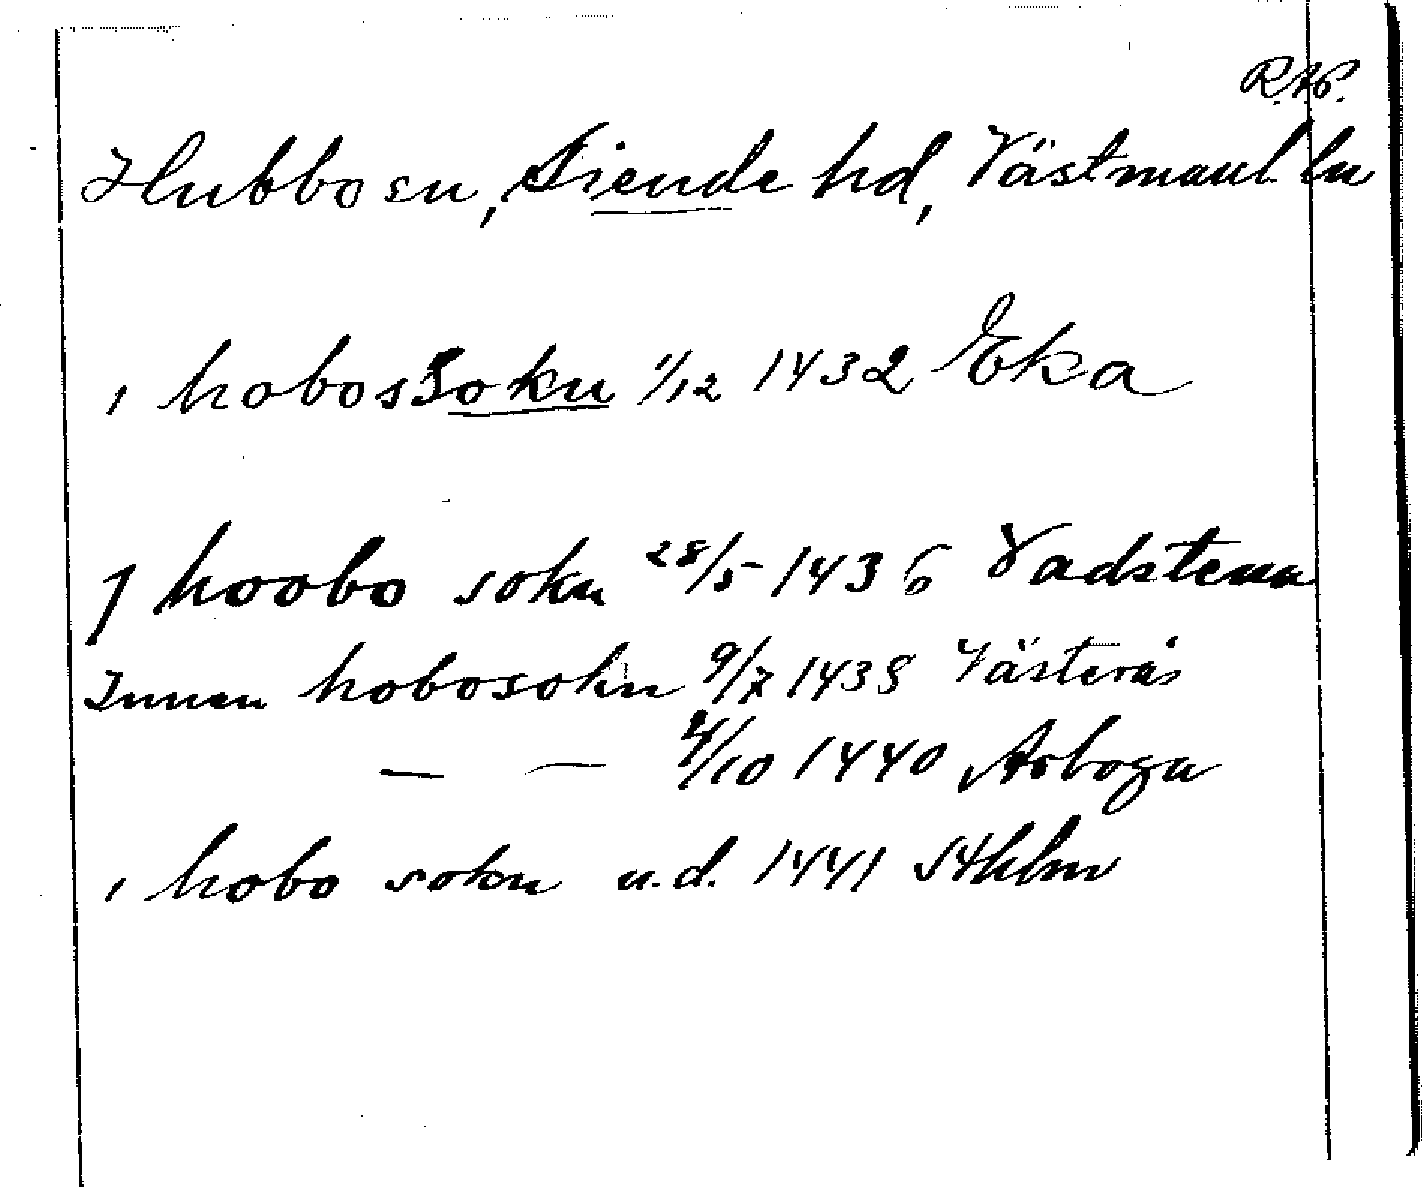 R.A.P.
Hubbo sn, Siende hd, Västmanl. län
i hobossokn 1/12 1432 Eka
J hoobo sokn 28/5 1436 Vadstena
Innan hobosokn 9/7 1438 Västerås
— — /10 1440 Arboga
i hobo sokn u.d. 1441 Sthlm